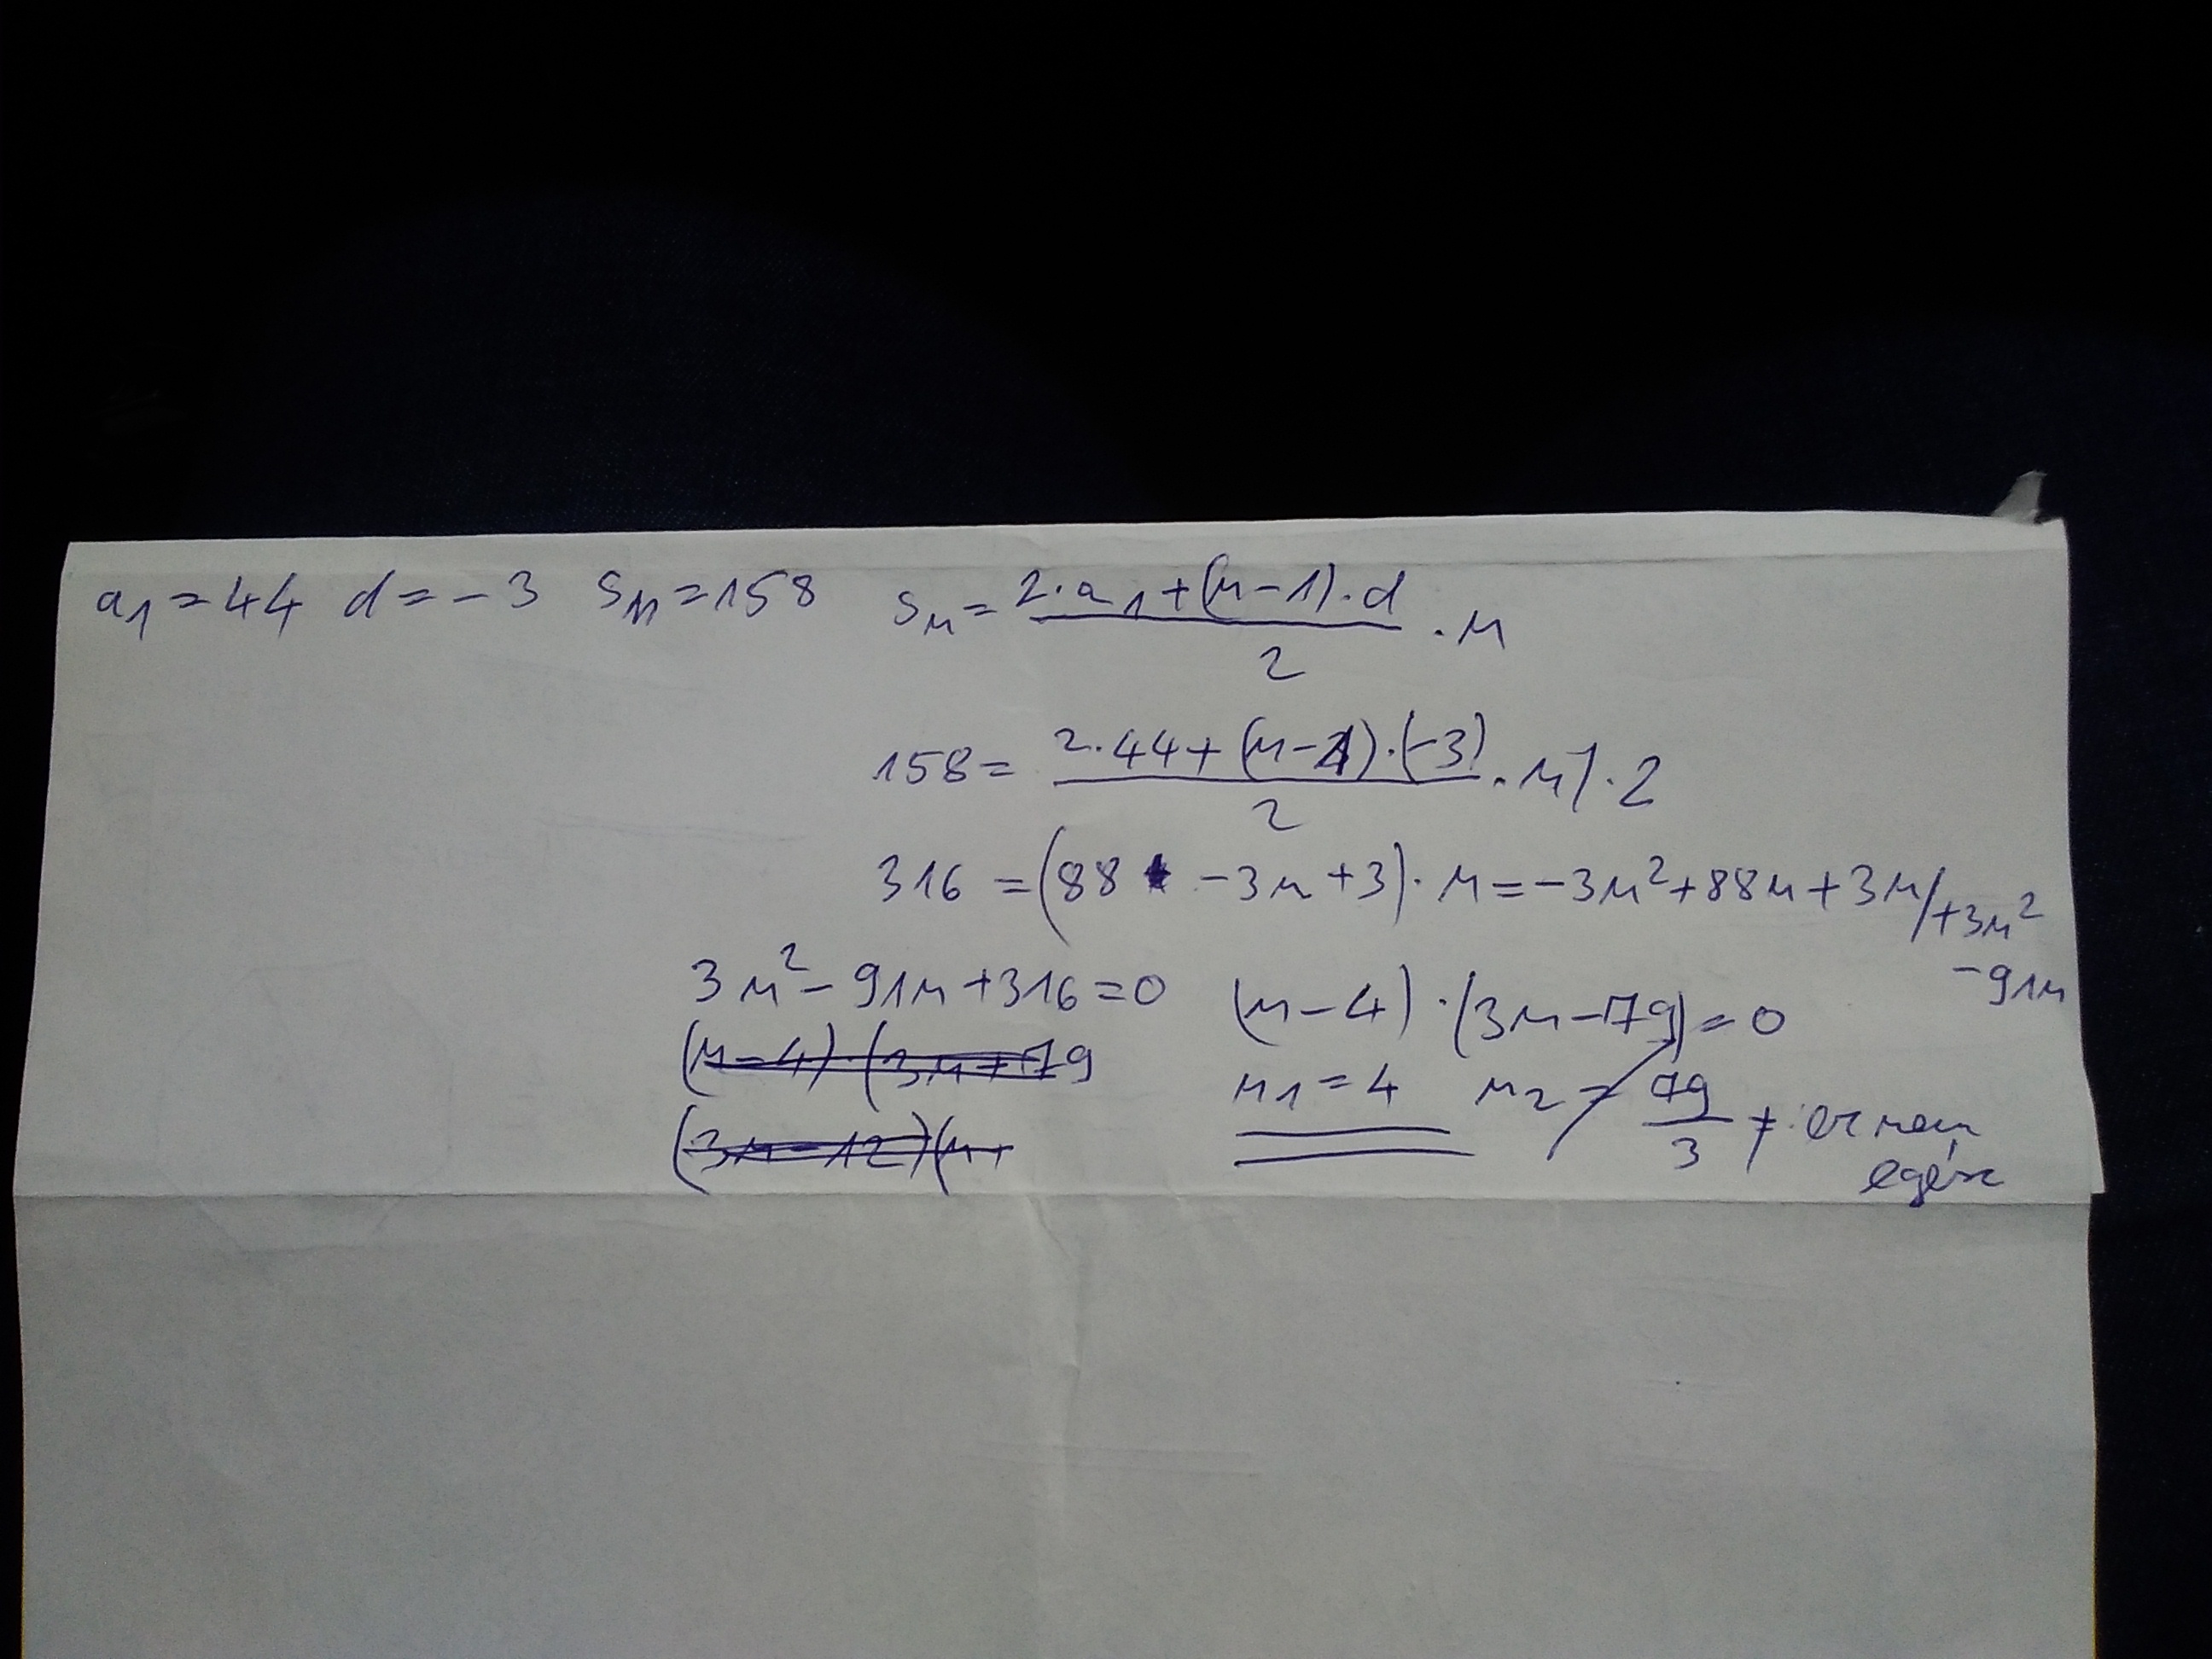 a₁ = 44 d = -3 Sₙ = 158 Sₙ = (2·a₁ + (n-1)·d)/2 · n
158 = (2·44 + (n-1)·(-3))/2 · n /·2
316 = (88 -3n +3)· n = -3n² + 88n + 3n /+3n²
-91n
3n² - 91n + 316 = 0 (n-4)·(3n-79) = 0
(n-4)·(3n+79 n₁ = 4 n₂ = 79/3 ez nem
egész
(3n-12)(n+